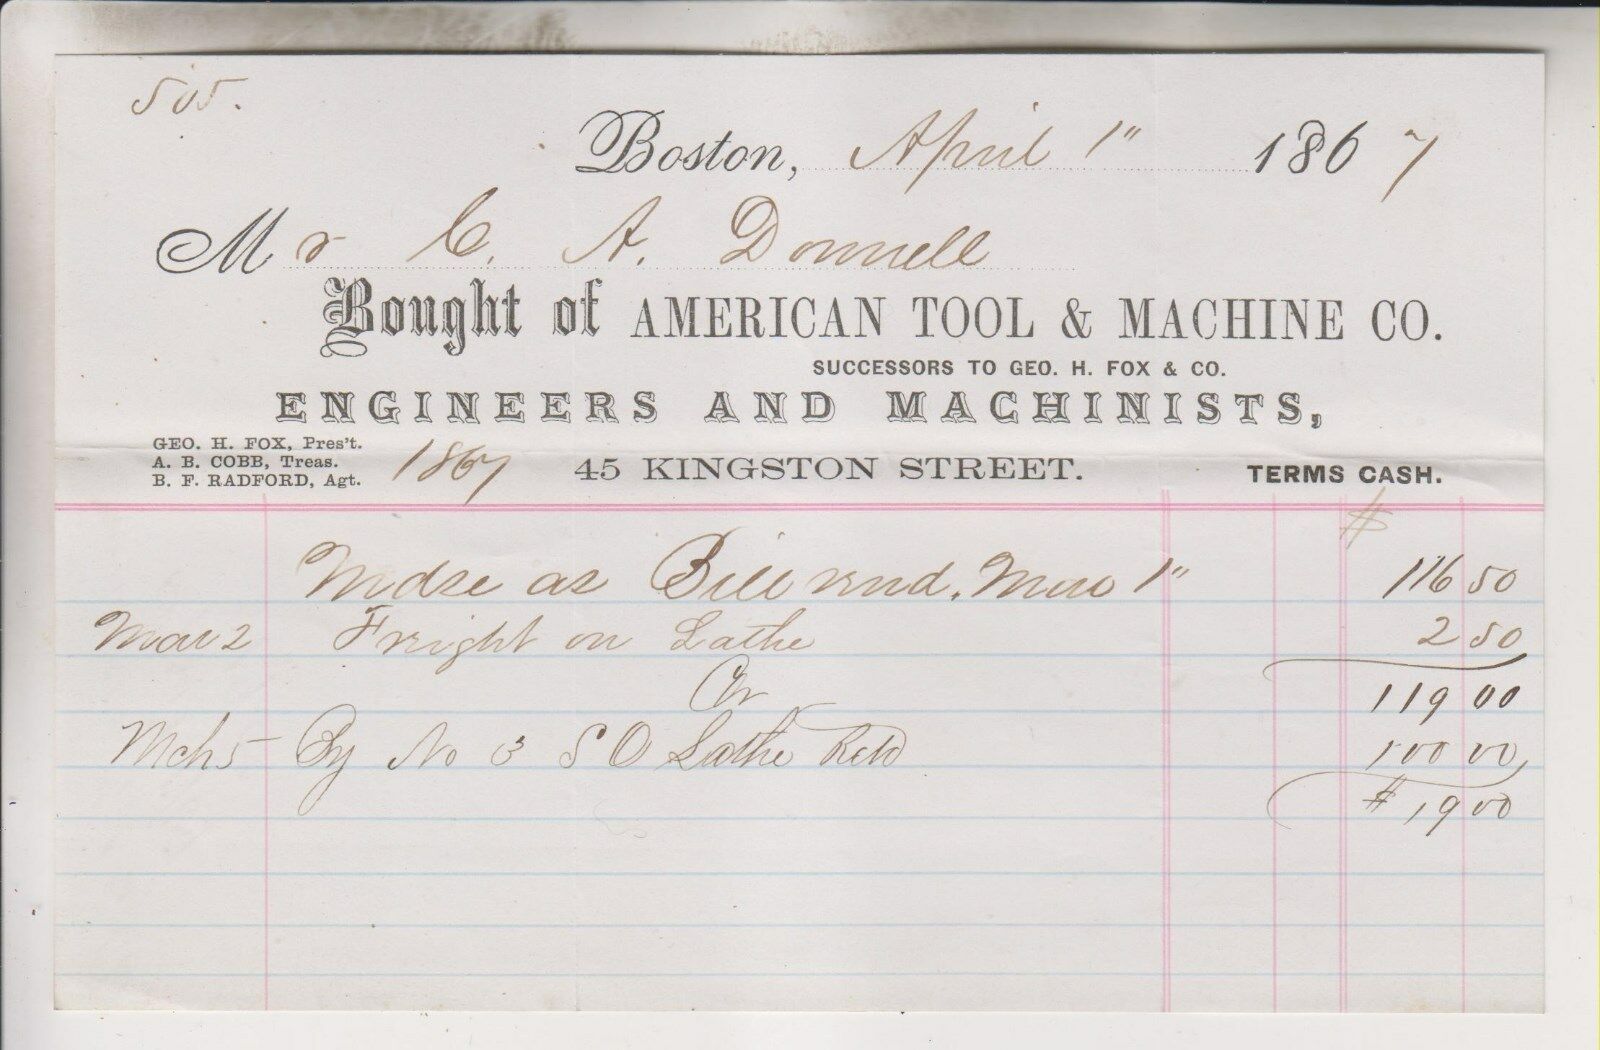 505.
Boston, April 1" 1867
Mr C. A. Donnell
Bought of AMERICAN TOOL & MACHINE CO.
SUCCESSORS TO GEO. H. FOX & CO.
ENGINEERS AND MACHINISTS,
GEO. H. FOX, Pres't.
A. B. COBB, Treas.
B. F. RADFORD, Agt.
1867
45 KINGSTON STREET.
TERMS CASH.
$
Mdse as Bill rend. Mar 1" 116 50
Mar 2 Freight on Lathe 2 50
119 00
Cr
Mch 5 By No 3 S O Lathe Retd 100 00
$ 19 00